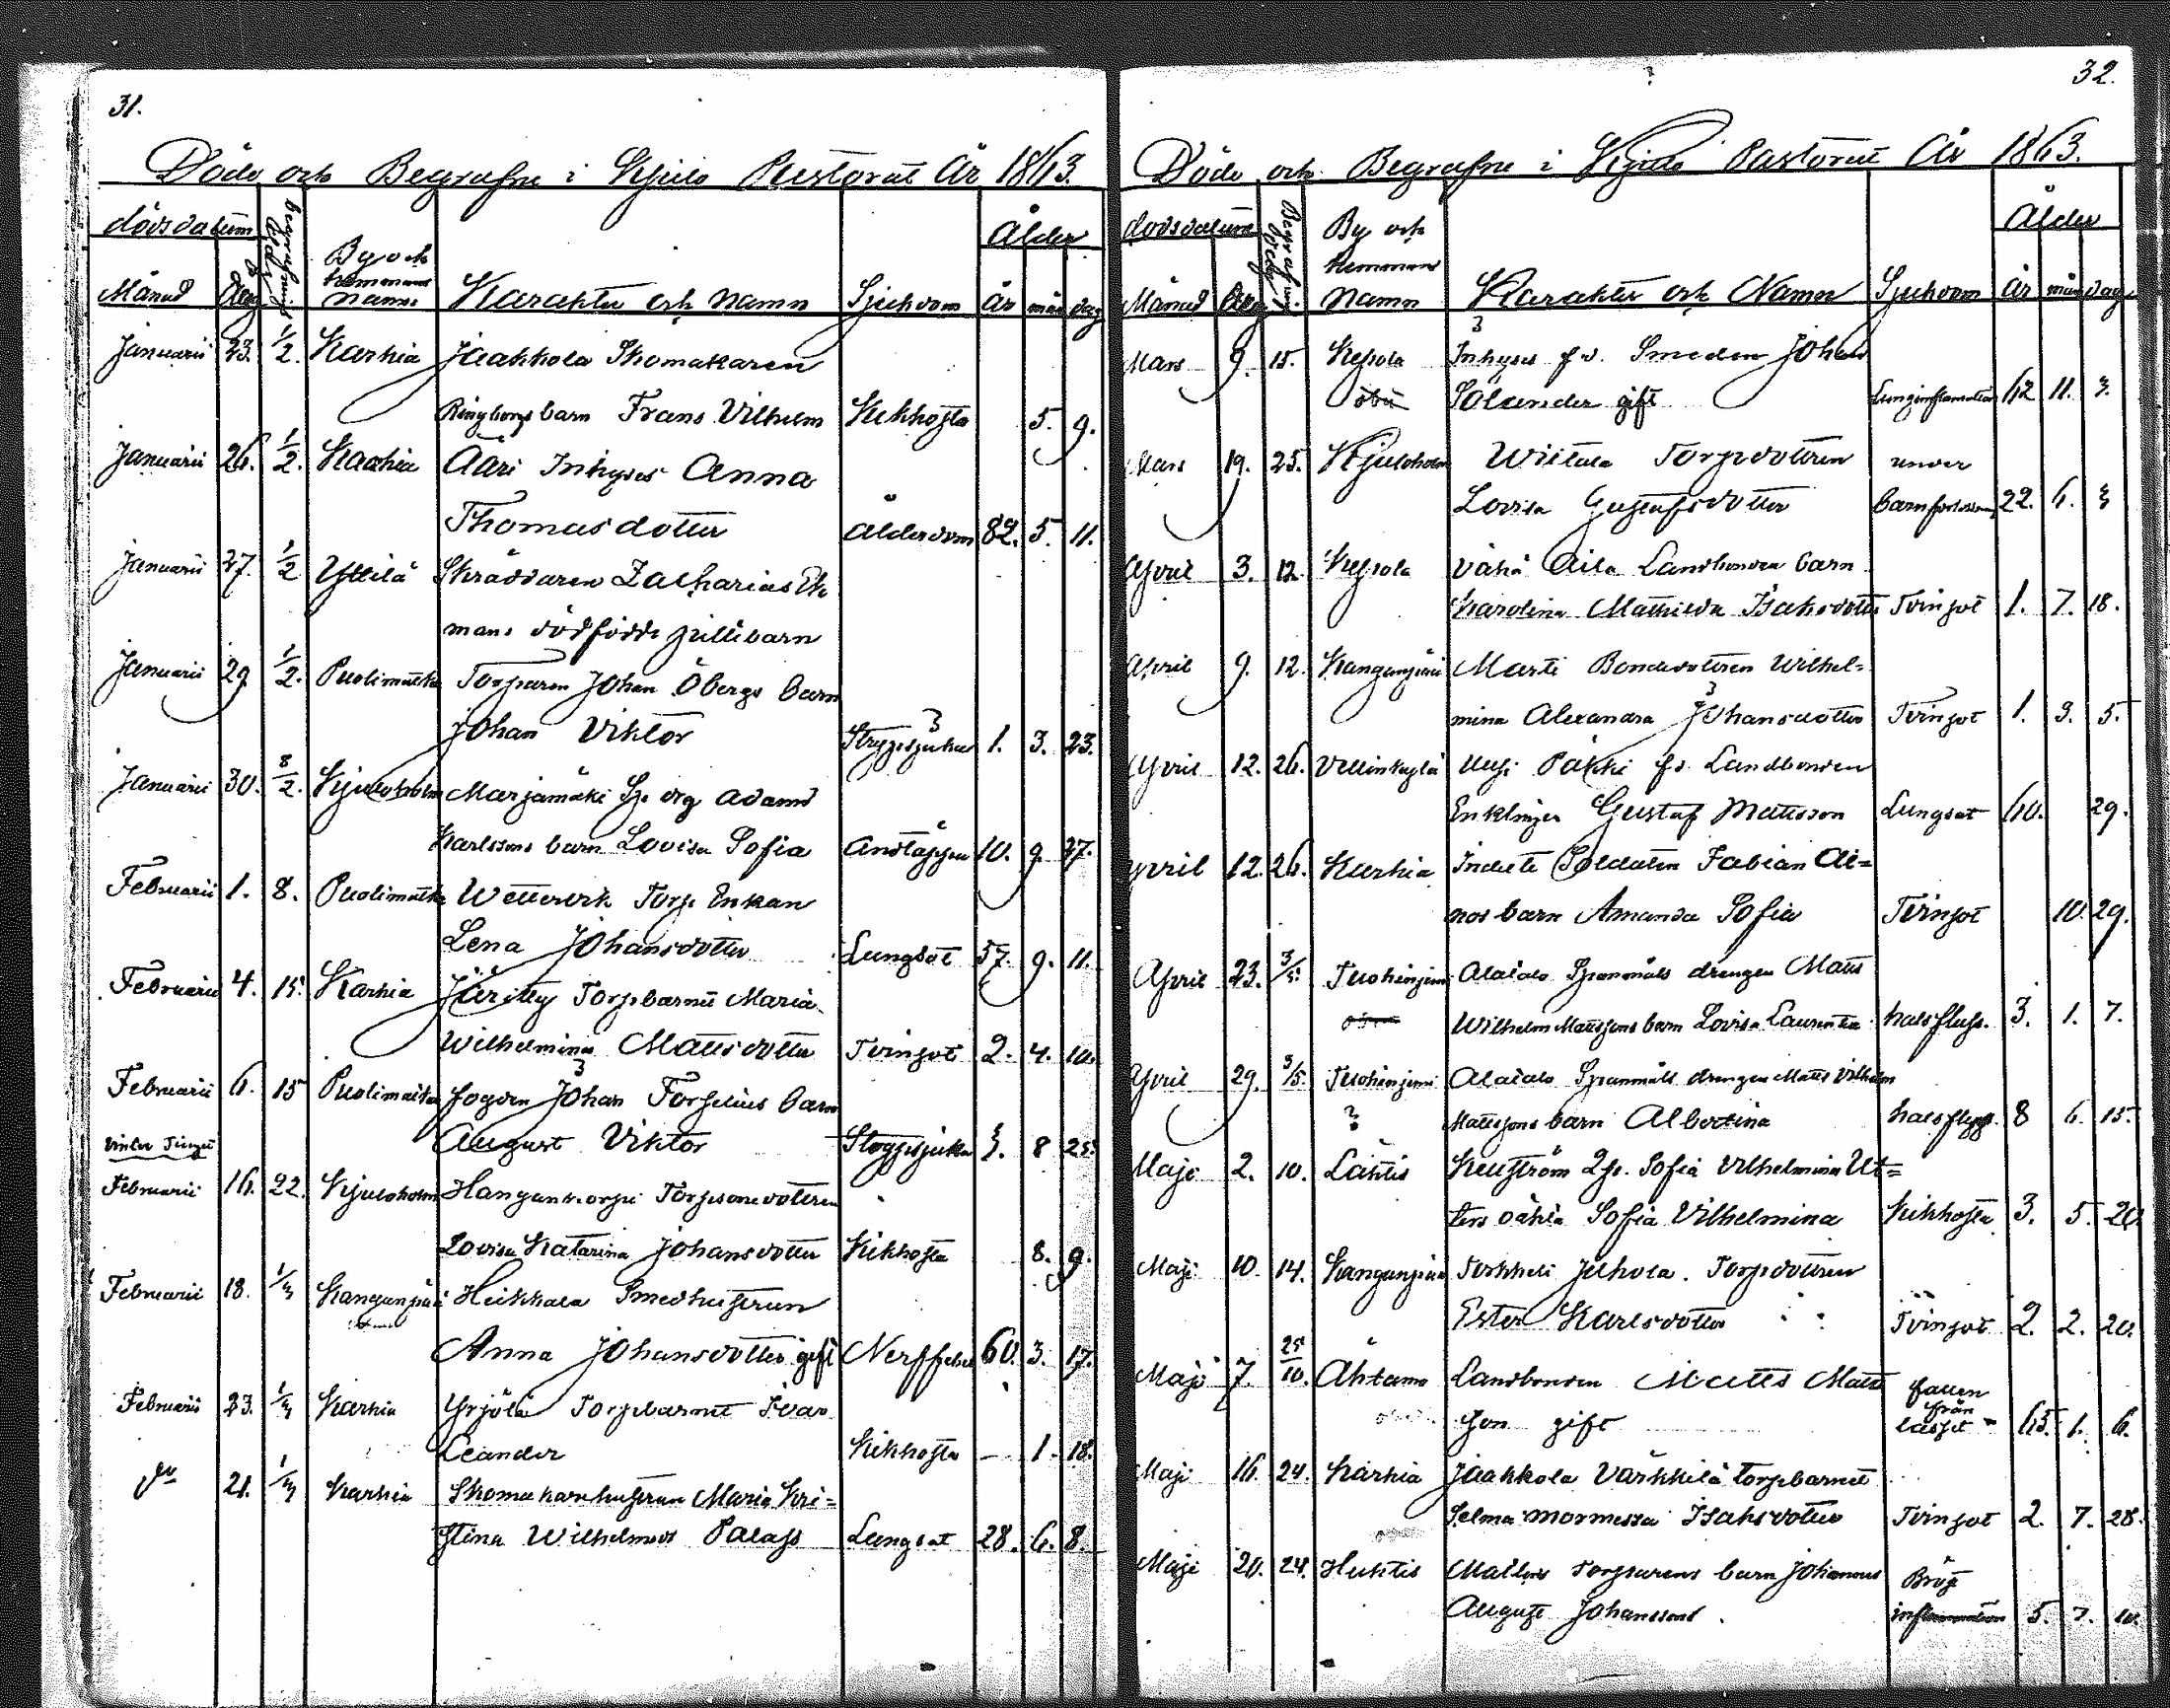 31.
Döde och Begrafne i Kjulo Pastorat År 1863.
dödsdatum
Begrafnings
By och
hemmans
Ålder
Månad Dag namn Karakter och namn Sjukdom år mån dag
Januarii 23. 1/2. Karhia Jaakkola Skomakaren
Ringborgs barn Frans Vilhelm Kikhosta 5. 9.
Januarii 26. 1/2. Karhia Ääri Inhyses Anna
Thomasdotter ålderdom 82. 5. 11.
Januarii 27. 1/2 Yttilä Skräddaren Zacharias Ek
mans dödfödde gillebarn
Januarii 29 1/2. Puolimatka Torparen Johan Öbergs barn
Johan Viktor Strypsjukan 1. 3. 23.
Januarii 30. 8/2. Kjuloholm Marjamäki Sp. drg Adams
Karlssons barn Lovisa Sofia Andtäppa 10. 9. 27.
Februarii 1. 8. Puolimatka Torp Enkan
Lena Johansdotter Lungsot 57. 9. 11.
Februarii 4. 15. Karhia Torpbarnet Maria
Wilhelmina Mattsdotter Tvinsot 2. 4. 10.
Februarii 6. 15 Puolimatka fogden Johan Forselius barn
August Viktor Strypsjuka 3. 8 25.
Vinter Tinget
Februarii 16. 22. Kjuloholm Hangankorpi Torpsonedotteren
Lovisa Katarina Johansdotter Kikhosta 8. 9.
Februarii 18. 1/3 Kanganpää Heikkala Smedhustrun
Anna Johansdotter gift Nerffeber 60. 3. 17.
Februarii 23. 1/3 Karhia Yrjölä Torpbarnet Ivar
Leander Kikhosta — 1. 18.
do 21. 1/3 Karhia Skomakarehustrun Maria Kri=
stina Wilhelmsd Palass Lungsot 28. 6. 8.
32.
Döde och Begrafne i Kjulo Pastorat År 1863.
dödsdatum
By och
hemmans
Ålder
Månad Dag Namn Karakter och Namn Sjukdom År mån dag
Mars 9. 15. Kepola Inhyses f.d. Smeden Johan
Sölander gift Lunginflamation 62 11. 3.
Mars 19. 25. Kjuloholm Wiitala Torpdottren under
Lovisa Gustafsdotter barnförlossn 22. 6. 3
April 3. 12. Kepola Vähä Aila Landbonden barn
Karolina Mathilda Isaksdotter Tvinsot 1. 7. 18.
April 9. 12. Kanganpää Martti Bondedottren Wilhel=
mina Alexandra Johansdotter Tvinsot 1. 9. 5.
April 12. 26. Vellinkylä Uusi Päkki fd. Landbonden
Enklingen Gustaf Mattsson Lungsot 60. 29.
April 12. 26. Karhia Indelte Soldaten Fabian Ai=
nos barn Amanda Sofia Tvinsot 10. 29.
April 23. 3/5. Tuohinjemi Alatalo Spanmåls drengen Matts
Wilhelm Mattssons barn Lovisa Laurentia halsfluss. 3. 1. 7.
April 29. 3/5. Tuohinjemi Alatalo Spanmåls drengen Matts Vilhelm
Mattssons barn Albertina halsfluss. 8 6. 15.
Maji 2. 10. Lähtis Keuström Qp. Sofia Vilhelmina Ut=
ters oäkta Sofia Vilhelmina Kikhosta 3. 5. 20.
Maji 10. 14. Kanganpää Torkkeli Juhola Torpdottren
Ester Karlsdotter Tvinsot 2. 2. 20.
Maji 7 25/10. Ähtamo Landbonden Matts Matts
son gift fallen från lasset 65. 1. 6.
Maji 16. 24. Karhia Jaakkola Värkkilä Torpbarnet
Selma Isaksdotter Tvinsot 2. 7. 28.
Maji 20. 24. Huhtis Torparens barn Johannes
August Johansson Bröst inflammation 5. 7. 10.